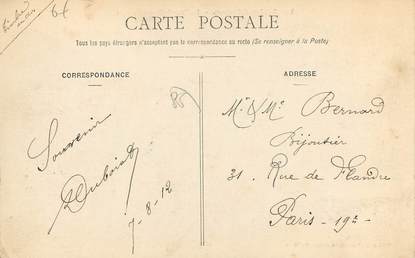 CARTE POSTALE
Tous les pays étrangers n'acceptent pas la correspondance au recto (Se renseigner à la Poste)
CORRESPONDANCE
ADRESSE
Souvenir
Dubois
7-8-12
Mr & Me Bernard
Bijoutier
31. Rue de Flandre
Paris - 19e -